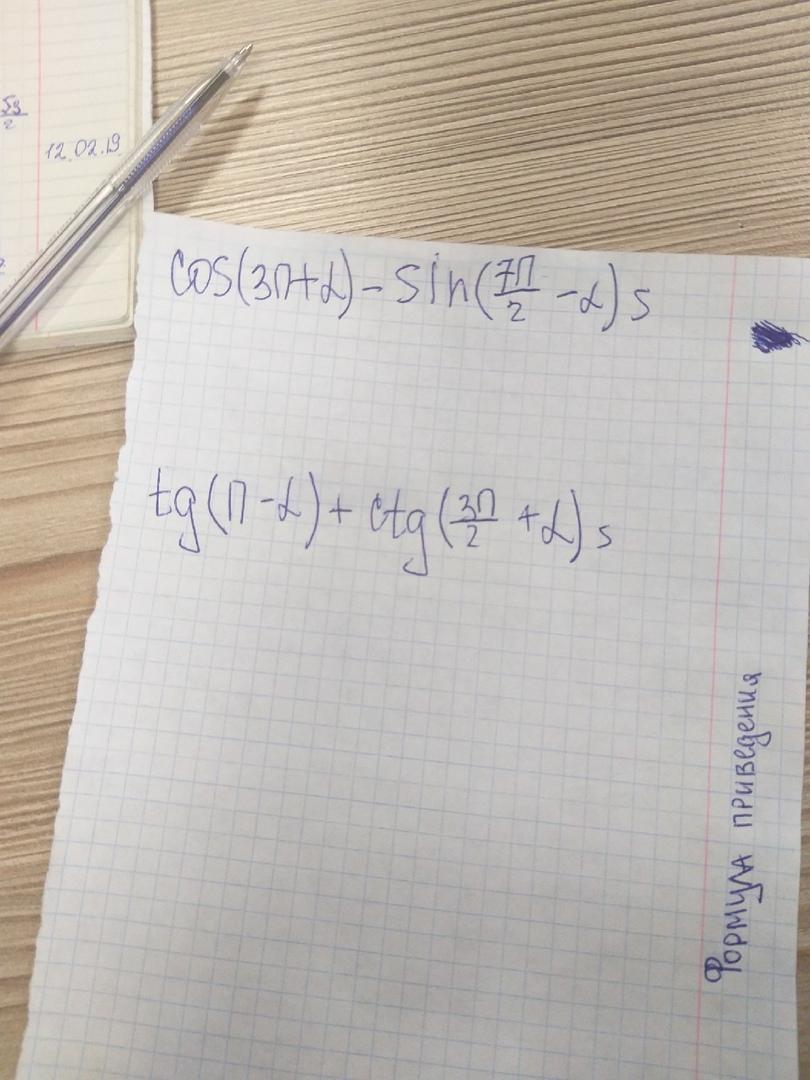 12.02.19
cos(3П+α) - sin(7П/2 - α) =
tg(П - α) + ctg(3П/2 + α) =
Формула приведения